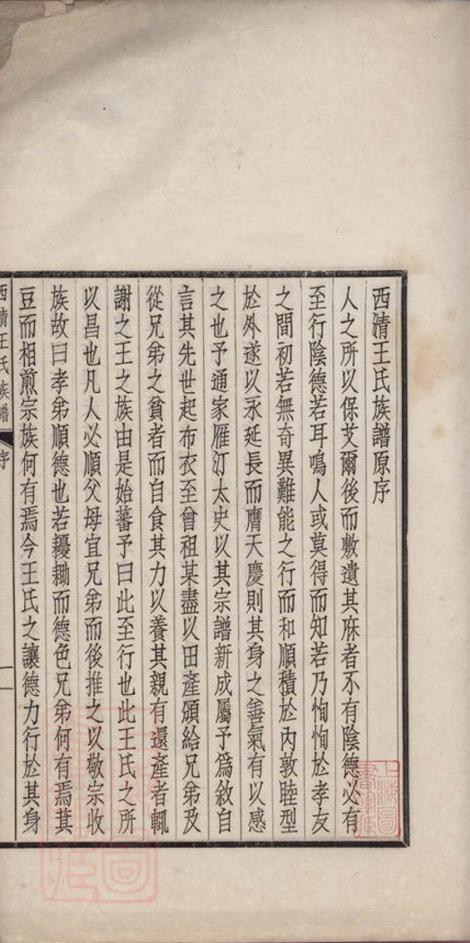 西清王氏族譜原序
人之所以保艾爾後而敷遺其庥者不有陰德必有
至行陰德若耳鳴人或莫得而知若乃恂恂於孝友
之間初若無奇異難能之行而和順積於內敦睦型
於外遂以永延長而膺天慶則其身之善氣有以感
之也予通家雁汀太史以其宗譜新成屬予為敘自
言其先世起布衣至曾祖某盡以田產頒給兄弟及
從兄弟之貧者而自食其力以養其親有還產者輒
謝之王之族由是始蕃予曰此至行也此王氏之所
以昌也凡人必順父母宜兄弟而後推之以敬宗收
族故曰孝弟順德也若耰耡而德色兄弟何有焉萁
豆而相煎宗族何有焉今王氏之讓德力行於其身
西清王氏族譜
序
一